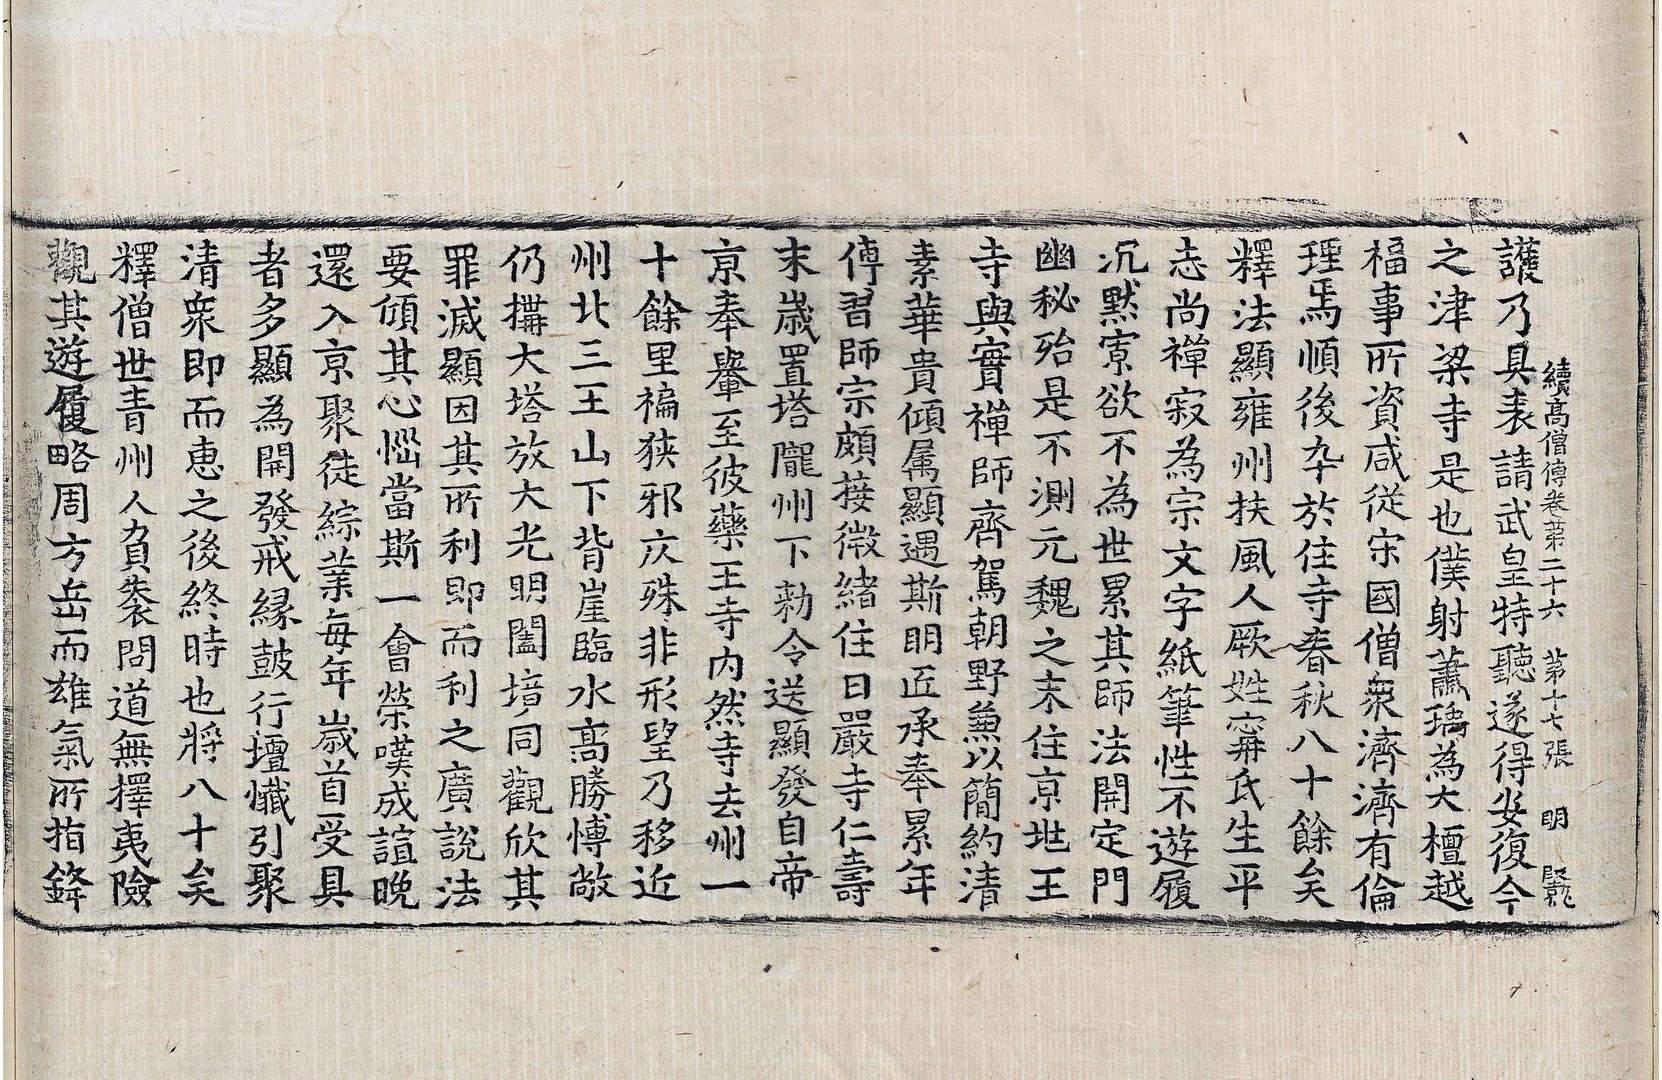 續高僧傳卷苐二十六　第十七張　明
護乃具表請武皇特聽遂得安復今
之津梁寺是也僕射蕭瑀為大檀越
福事所資咸従宋國僧衆濟濟有倫
理焉順後卒於住寺春秋八十餘矣
釋法顯雍州扶風人厥姓寗氏生平
志尚禪寂為宗文字紙筆性不遊履
沉默寮欲不為世累其師法開定門
幽秘殆是不測元魏之末住京地王
寺與實禪師齊駕朝野兼以簡約清
素華貴傾属顯遇斯明匠承奉累年
傳習師宗頗接微緒住日嚴寺仁壽
末歳置塔隴州下勑令送顯發自帝
京奉轝至彼藥王寺内然寺去州一
十餘里褊狹邪仄殊非形望乃移近
州北三王山下背崖臨水髙勝博敞
仍搆大塔放大光明闔境同觀欣其
罪滅顯因其所利即而利之廣說法
要傾其心惱當斯一會榮嘆成誼晚
還入京聚徒綜業每年歳首受具
者多顯為開發戒縁鼓行壇懺引聚
清衆即而恵之後終時也將八十矣
釋僧世青州人負袠問道無擇夷險
觀其遊履略周方岳而雄氣所指鋒